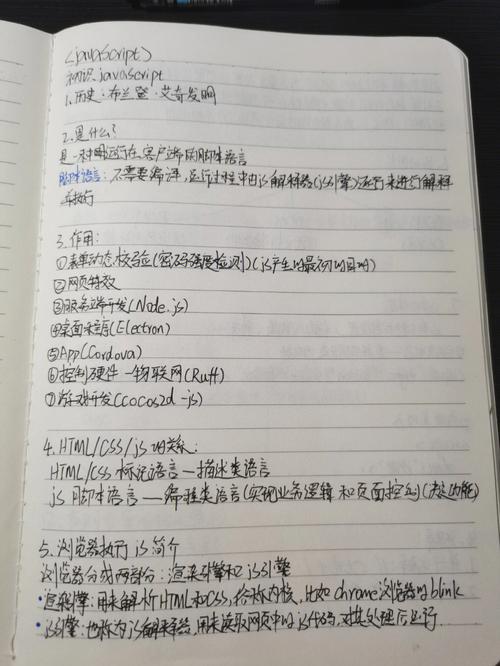 <javascript>
初识javascript
1.历史:布兰登·艾奇发明
2.是什么?
是一种运行在客户端的脚本语言
脚本语言:不需要编译,运行过程中由js解释器(js引擎)逐行来进行解释
并执行
3.作用:
①表单动态校验(密码强度检测)(js产生的最初的目的)
②网页特效
③服务端开发(Node.js)
④桌面程序(Electron)
⑤App(Cordova)
⑥控制硬件—物联网(Ruff)
⑦游戏开发(cocos2d-js)
4.HTML/CSS/js的关系:
HTML/CSS标记语言—描述类语言
js脚本语言——编程类语言(实现业务逻辑和页面控制)(决定功能)
5.浏览器执行js简介
浏览器分成两部分:渲染引擎和js引擎
·渲染引擎:用来解析HTML和CSS,俗称内核,比如chrome浏览器的blink
·js引擎:也称为js解释器,用来读取网页中的js代码,对其处理后运行